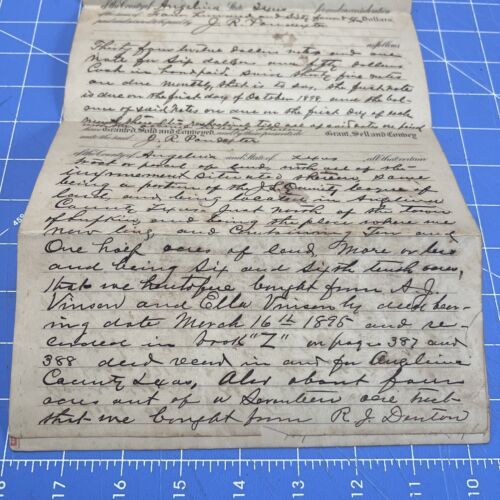 of the County of Angelina State Texas for and in consideration
of the sum of Four Hundred and Sixty Dollars
J. R. Poindexter
as follows
Thirty four twelve Dollars notes and one
Note for Six dollars and fifty Dollars
Cash in hand paid, said thirty five notes
are due monthly, that is to say, the first note
is due on the first day of October 1898 and the bal-
ance of said notes are due on the first day of each
have Granted, Sold and Conveyed Grant, Sell and Convey
J. R. Poindexter
of the County of Angelina and State of Texas all that certain
being a portion of the J. L. Quinalty league of
land, and being located in Angelina
County Texas, Just north of the town
of Lufkin and being the place where we
now live, and Containing Two and
One half acres of land, More or less
and being Six and Six tenth acres,
that we heretofore bought from A. J.
Vinson and Ella Vinson by deed bear-
ing date March 16th 1895 and re-
corded in book "Z" on pages 387 and
388 deed record in and for Angelina
County Texas, Also about four
acres out of a Seventeen acre
that we bought from R. J. Denton
450
16 15 14 13 12 11 10